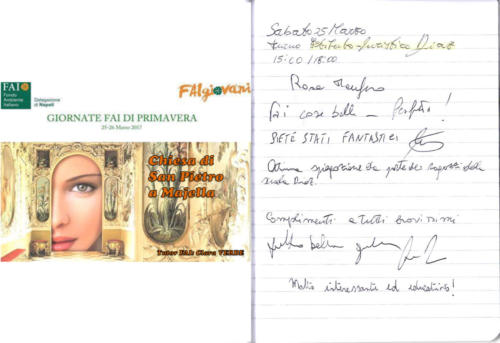 FAI
Fondo
Ambiente
Italiano
Delegazione
di Napoli
FAIgiovani
GIORNATE FAI DI PRIMAVERA
25-26 Marzo 2017
Chiesa di
San Pietro
a Majella
Tutor FAI: Clara VERDE
Sabato 25 Marzo
turno Istituto Turistico Diaz
15:00 / 18:00
Rosa
Fai cose belle - Perfetto!
SIETE STATI FANTASTICI
Ottima spiegazione da parte dei ragazzi della
Complimenti a tutti bravissimi
Molto interessante ed educativo!